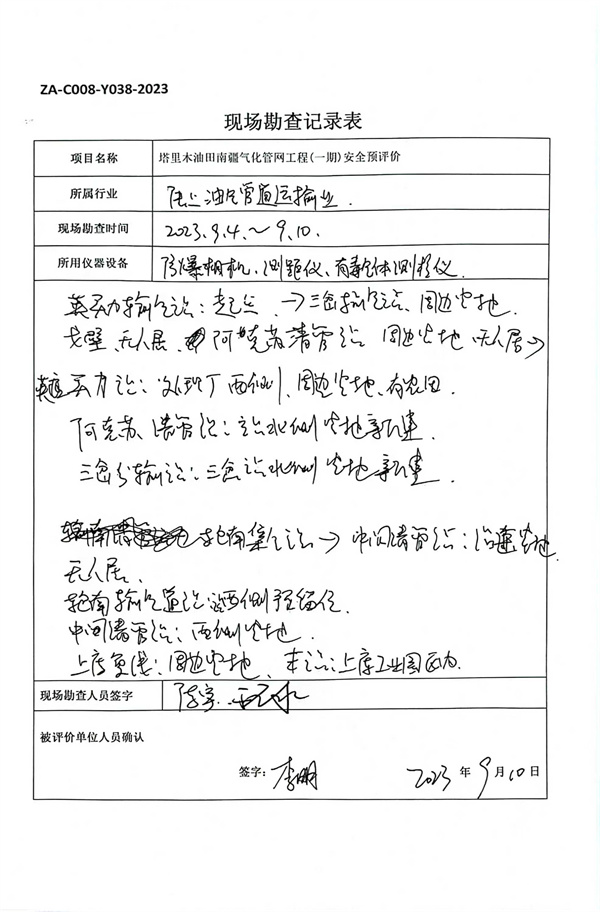 ZA-C008-Y038-2023
现场勘查记录表
项目名称 塔里木油田南疆气化管网工程(一期)安全预评价
所属行业 陆上油气管道运输业.
现场勘查时间 2023.9.4.~9.10.
所用仪器设备 防爆相机、测距仪、有毒气体测移仪.
英买力输气站:起点 →三岔输气站、周边空地.
戈壁、无人居、阿克苏清管站 周边空地 无人居→
英买力站: 西侧、周边空地、有农田.
阿克苏清管站:站北侧空地新建.
三岔分输站:三岔站北侧空地新建.
南集气站→中间清管站:沿途空地.
无人居.
南输气首站 西侧预留位.
中间清管站:西侧空地.
上库复线:周边空地、末站:上库工业园
现场勘查人员签字 陈宇
被评价单位人员确认
签字: 李明 2023 年 9 月 10 日